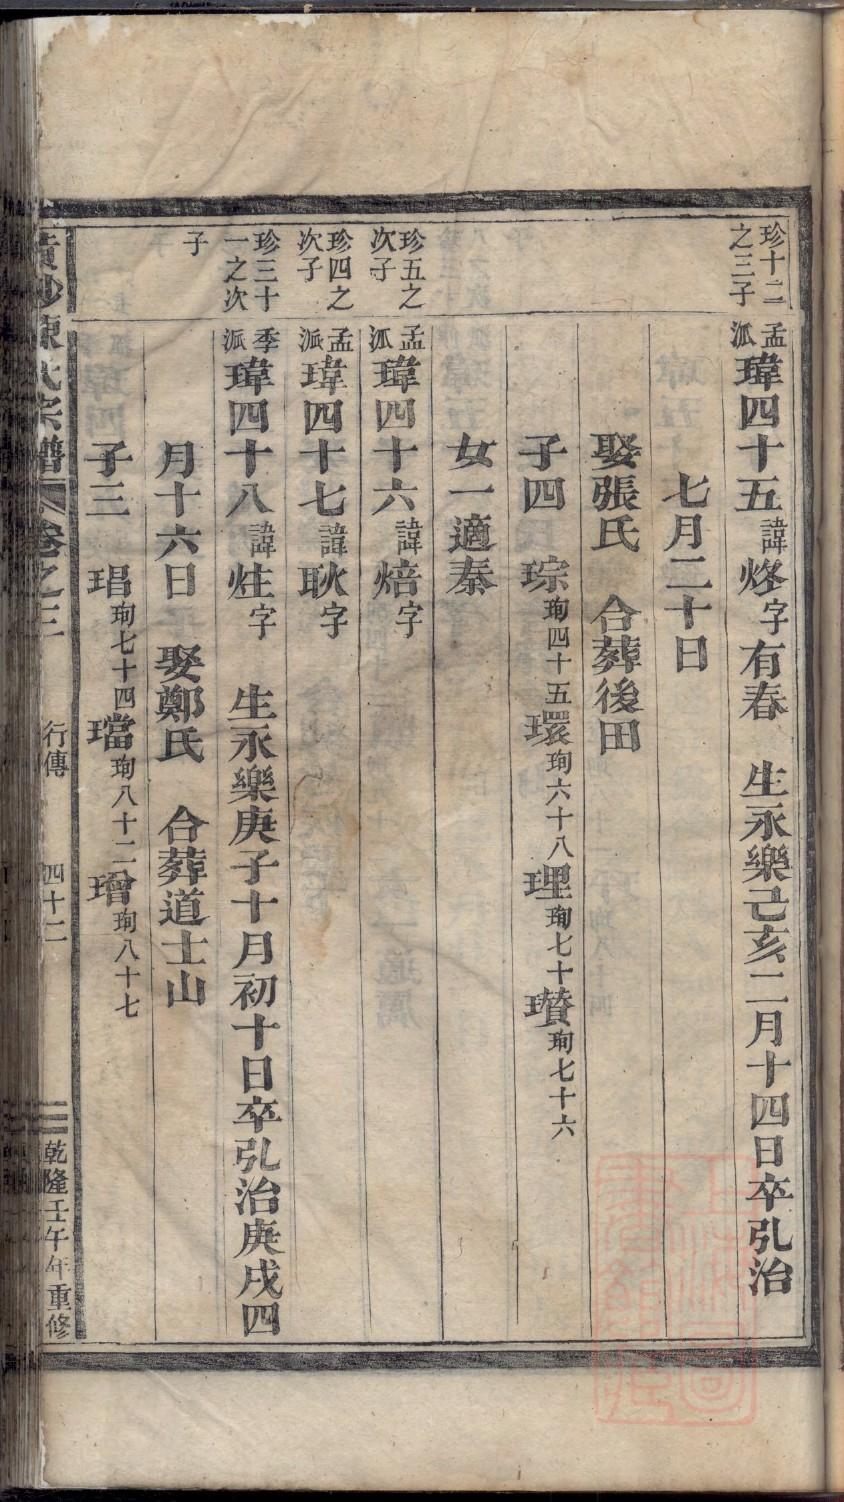 珍十二之三子
孟派瑋四十五諱烽字有春 生永樂己亥二月十四日卒弘治
七月二十日
娶張氏 合葬後田
子四 琮珣四十五環珣六十八理珣七十瓚珣七十六
女一適秦
珍五之次子
孟派瑋四十六諱焙字
珍四之次子
孟派瑋四十七諱耿字
珍三十一之次子
季派瑋四十八諱炷字 生永樂庚子十月初十日卒弘治庚戌四
月十六日 娶鄭氏 合葬道士山
子三 琩珣七十四璫珣八十二璔珣八十七
陳氏宗譜 卷之三 行傳 四十二 乾隆壬午年重修
上海圖書館藏